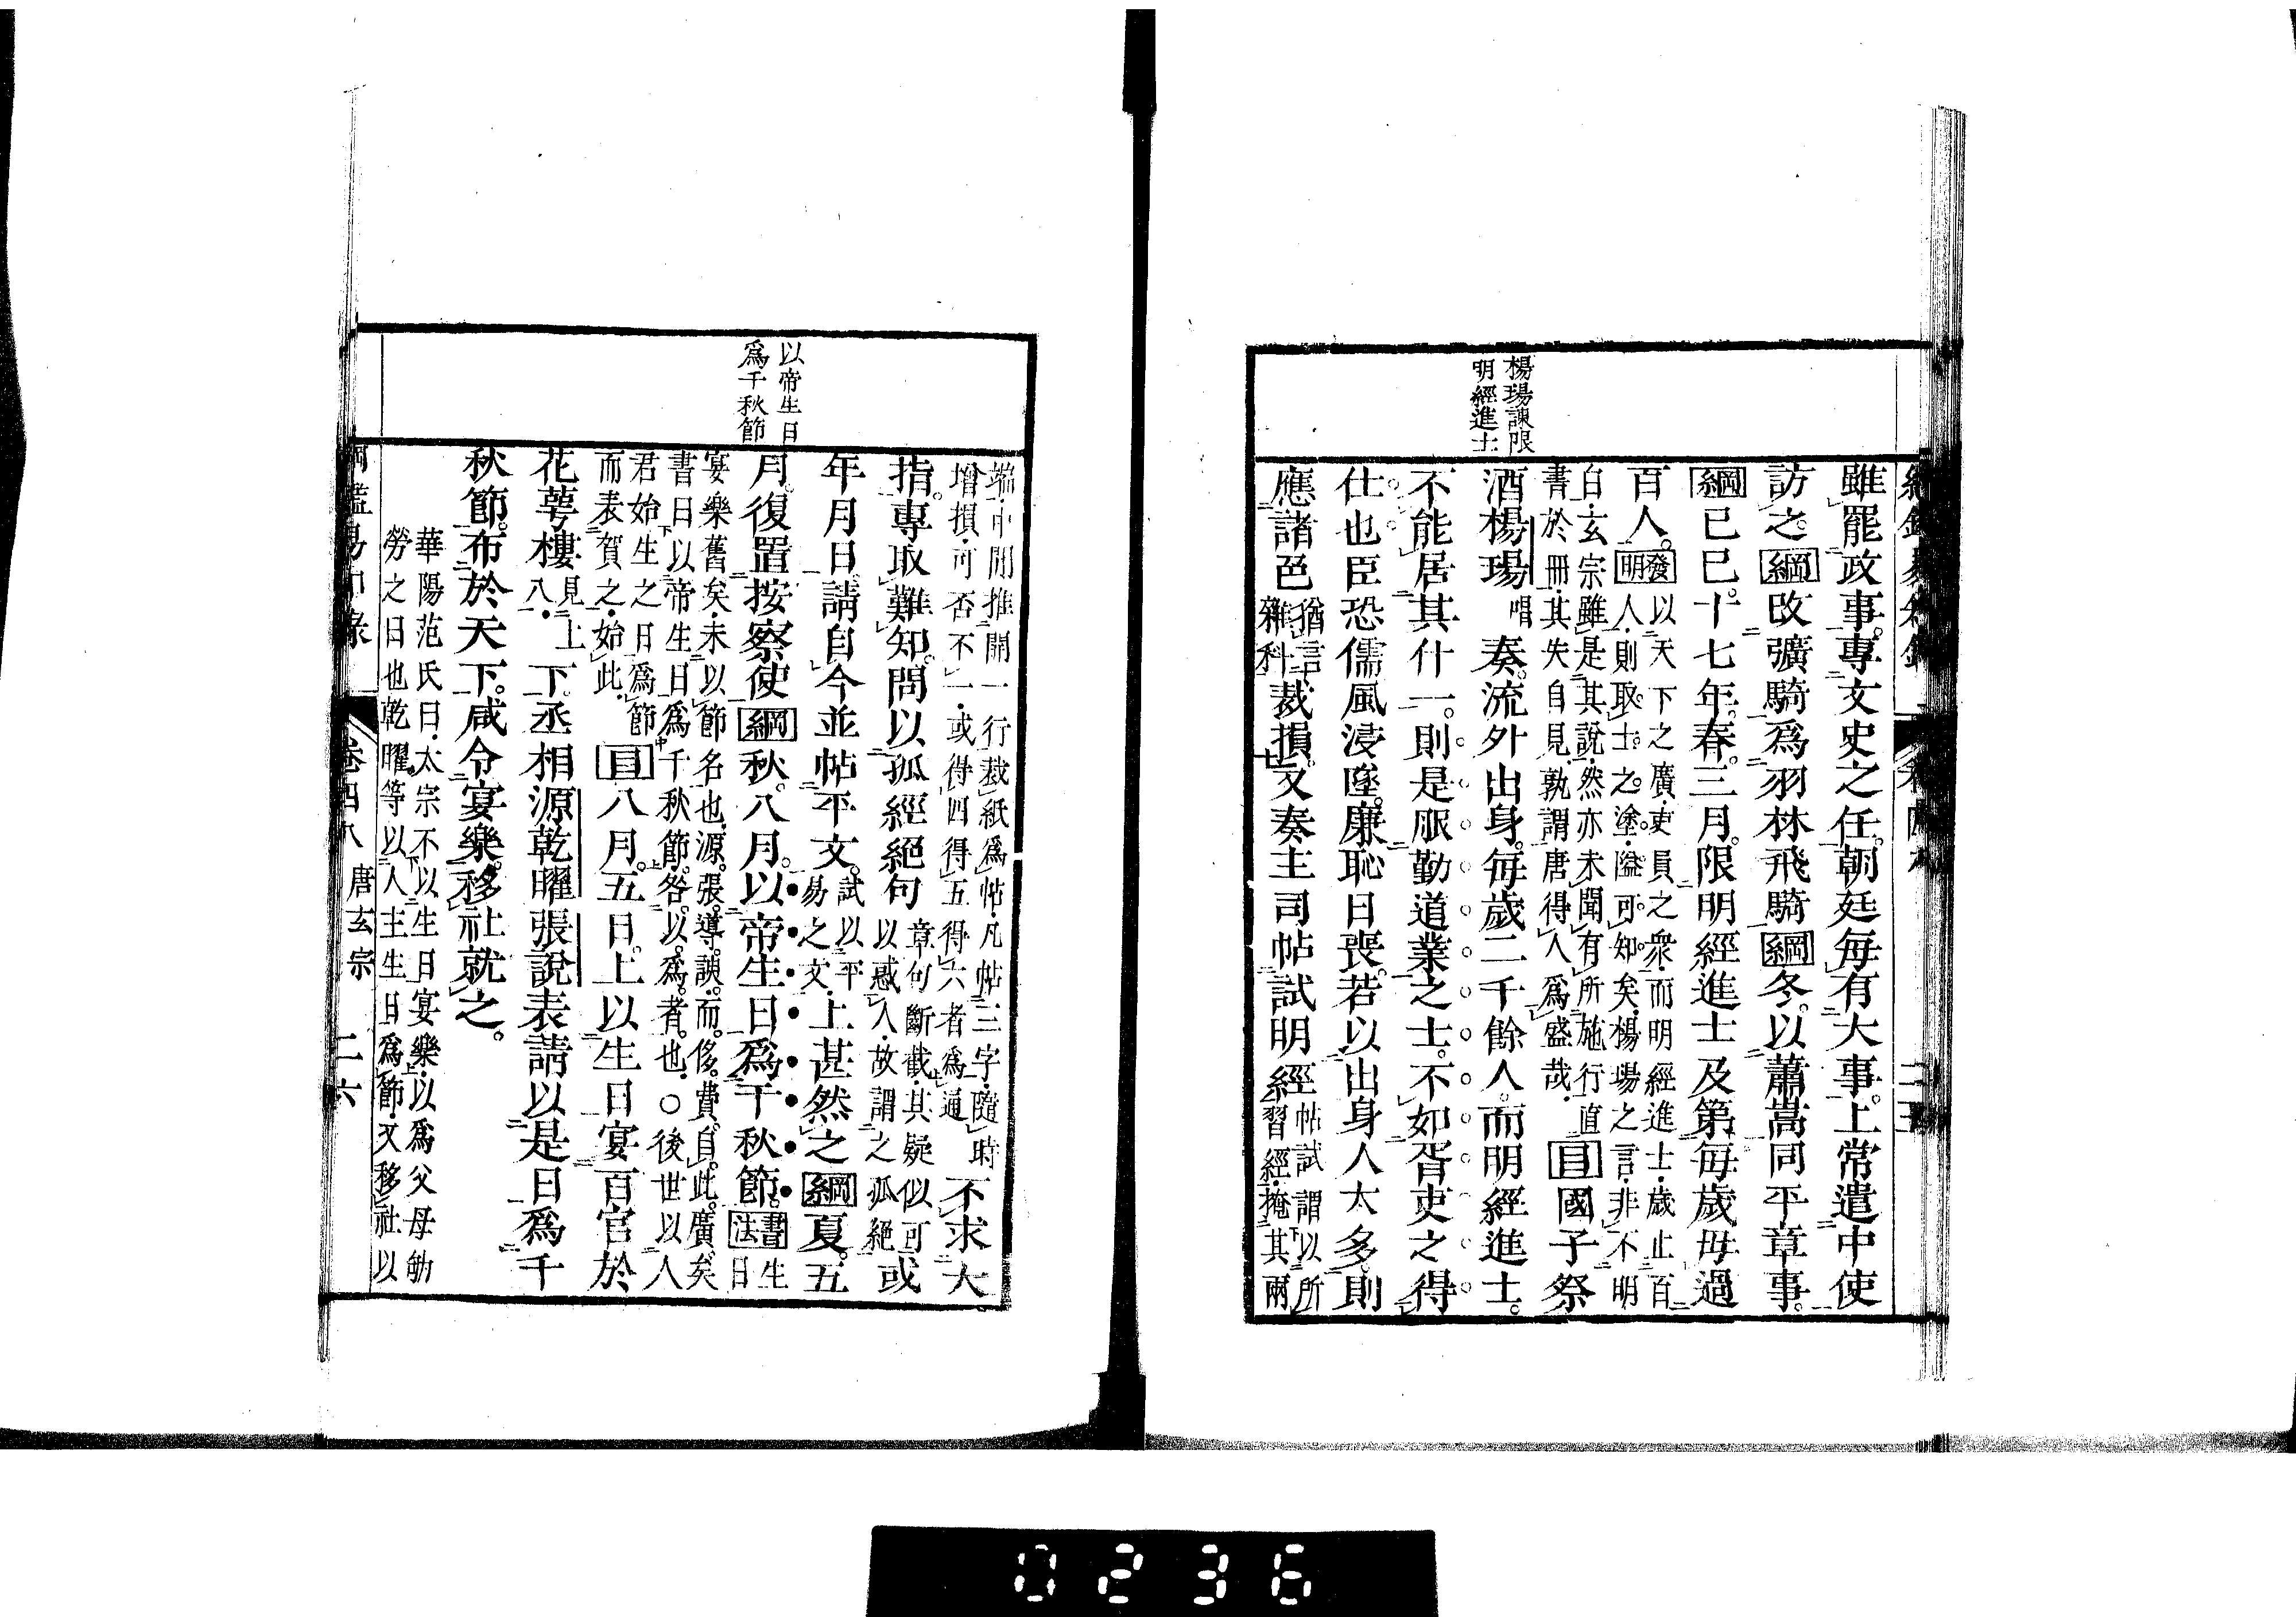 楊瑒諫限
明經進士
雖罷政事。專文史之任。朝廷每有大事。上常遣中使
訪之。綱改彍騎爲羽林飛騎綱冬。以蕭嵩同平章事。
綱己巳。十七年。春。三月。限明經進士及第每歲毋過
百人。發明以天下之廣吏員之衆而明經進士歲止百
人則取士之塗隘可知矣楊瑒之言非不明
白玄宗雖是其說然亦未聞有所施行直
書於冊其失自見孰謂唐得人爲盛哉目國子祭
酒楊瑒唱奏。流外出身。每歲二千餘人。而明經進士。
不能居其什一。則是服勤道業之士。不如胥吏之得
仕也。臣恐儒風浸墜。廉恥日喪。若以出身人太多。則
應諸色猶言雜科裁損。又奏主司帖試明經帖試謂以所
習經掩其兩
以帝生日
爲千秋節
端中間推開一行裁紙爲帖凡帖三字隨時
增損可否不一或得四得五得六者爲通不求大
指。專取難知。問以孤經絕句章句斷截其疑似可
以惑人故謂之孤絕或
年月日請自今並帖平文。試以平
易之文上甚然之綱夏。五
月。復置按察使綱秋。八月。以帝生日爲千秋節。書法生日
宴樂舊矣未以節名也源張導諛而侈費自此廣矣
書曰以帝生日爲千秋節咎以爲者也○後世以人
君始生之日爲節
而表賀之始此目八月。五日。上以生日宴百官於
花萼樓見上八下。丞相源乾曜張說表請以是日爲千
秋節。布於天下。咸令宴樂。移社就之。
華陽范氏曰太宗不以生日宴樂以爲父母劬
勞之日也乾曜等以人主生日爲節又移社以
卷四八 唐玄宗 二六